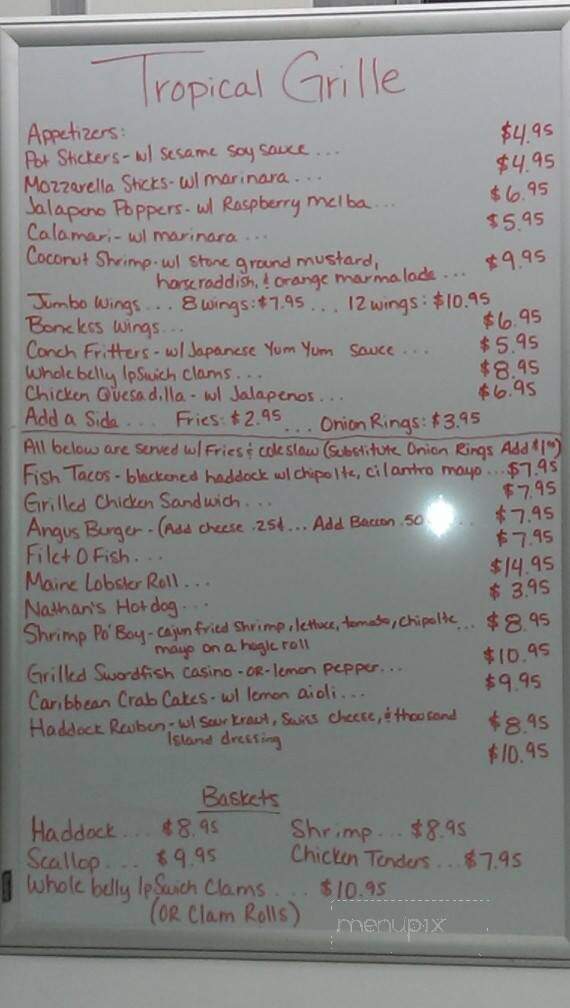 Tropical Grille
Appetizers:
Pot Stickers - w/ sesame soy sauce ... $4.95
Mozzarella Sticks - w/ marinara ... $4.95
Jalapeno Poppers - w/ Raspberry melba ... $6.95
Calamari - w/ marinara ... $5.95
Coconut Shrimp - w/ stone ground mustard,
horseraddish, & orange marmalade ... $9.95
Jumbo Wings ... 8 wings: $7.95 ... 12 wings: $10.95
Boneless wings ... $6.95
Conch Fritters - w/ Japanese Yum Yum Sauce ... $5.95
Whole belly IpSwich clams ... $8.95
Chicken Quesadilla - w/ Jalapenos ... $6.95
Add a Side ... Fries: $2.95 ... Onion Rings: $3.95
All below are served w/ Fries & coleslaw (Substitute Onion Rings Add $1)
Fish Tacos - blackened haddock w/ chipolte, cilantro mayo ... $7.95
Grilled Chicken Sandwich ... $7.95
Angus Burger - (Add cheese .25¢ ... Add Baccon .50 $7.95
Filet O Fish ... $7.95
Maine Lobster Roll ... $14.95
Nathan's Hotdog ... $3.95
Shrimp Po'Boy - cajun fried shrimp, lettuce, tomato, chipolte ... $8.95
mayo on a hogie roll
Grilled Swordfish Casino - OR - lemon pepper ... $10.95
Caribbean Crab Cakes - w/ lemon aioli ... $9.95
Haddock Reuben - w/ sour kraut, Swiss cheese, & thousand $8.95
Island dressing $10.95
Baskets
Haddock ... $8.95 Shrimp ... $8.95
Scallop ... $9.95 Chicken Tenders ... $7.95
Whole belly IpSwich Clams ... $10.95
(OR Clam Rolls)
menupix